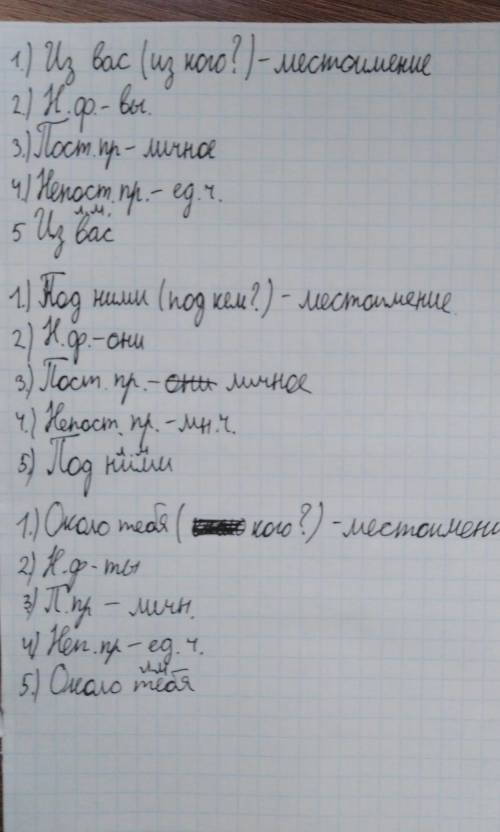 1.) Из вас (из кого?) - местоимение
2.) Н.ф. - вы.
3.) Пост.пр - личное
4.) Непост.пр. - ед.ч.
л.м.
5 Из вас
1.) Под ними (под кем?) - местоимение.
2) Н.ф. - они
3.) Пост. пр. - они личное
4.) Непост. пр. - мн.ч.
5.) Под ними
1.) Около тебя ( кого?) - местоимени
2) Н.ф - ты
3) П.пр - личн.
4) Неп.пр - ед.ч.
л.м
5.) Около тебя